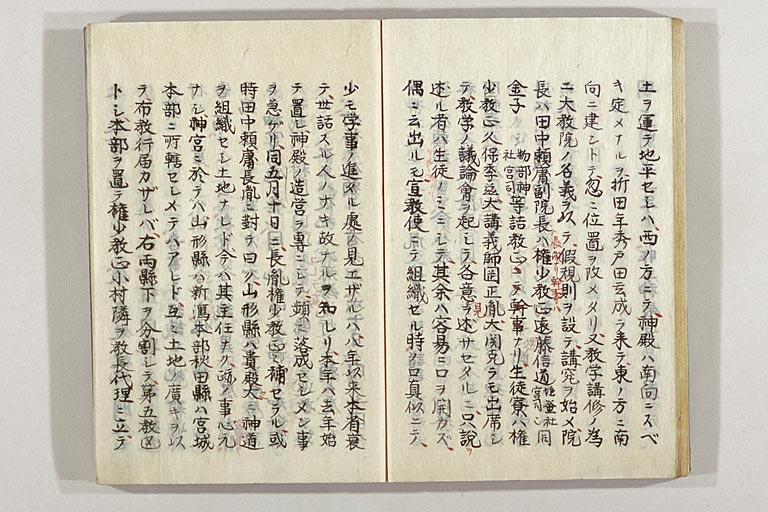 土ヲ運テ地平セシハ西ノ方ニテ神殿ハ南向ニスベ
キ定メナルヲ折田年秀戸田玄成ラ来テ東ノ方ニ南
向ニ建ントテ忽ニ位置ヲ改メタリ又教学講修ノ為
ニ大教院ノ名義ヲ以テ假規則ヲ設テ講究ヲ始メ院
長ハ田中頼庸副院長ハ権少教正遠藤信道同
金子 物部神社宮司等詰教正ニテ幹事ナリ生徒寮ハ権
少教正久保季茲大講義師岡正胤大関克ラモ出席シ
テ教学ノ議論會ヲ起シテ各意見ヲ述サセタルニ口ハ説
述ル者ハ生徒ノミニシテ其余ハ容易ニ口ヲ開カズ
偶ニ云出ルモ宣教使ニテ組織セル時ノ口真似ニテ
少モ学事ノ進メル處ノ見エザルハ八年以来本省衰
テ世話スル人ノナキ故ナルヲ知レリ本年ハ去年始
テ置シ神殿ノ造営ヲ専ニシテ頻ニ落成セシメン事
ヲ急ゲリ同五月十日ニ長胤権少教正ニ補セラル或
時田中頼庸長胤ニ對テ曰ク山形縣ハ貴殿大ニ神道
ヲ組織セシ土地ナレド今ハ其主任ナク頗ル事心元
ナシ神宮ニ於テハ山形縣ハ新潟本部秋田縣ハ宮城
本部ニ所轄セシメテハアレド互ニ土地ノ廣キヲ以
ヲ布教行届カザレバ右両縣下ヲ分割シテ第五教区
トシ本部ヲ置テ権少教正小村隣ヲ教長代理ニ立テ